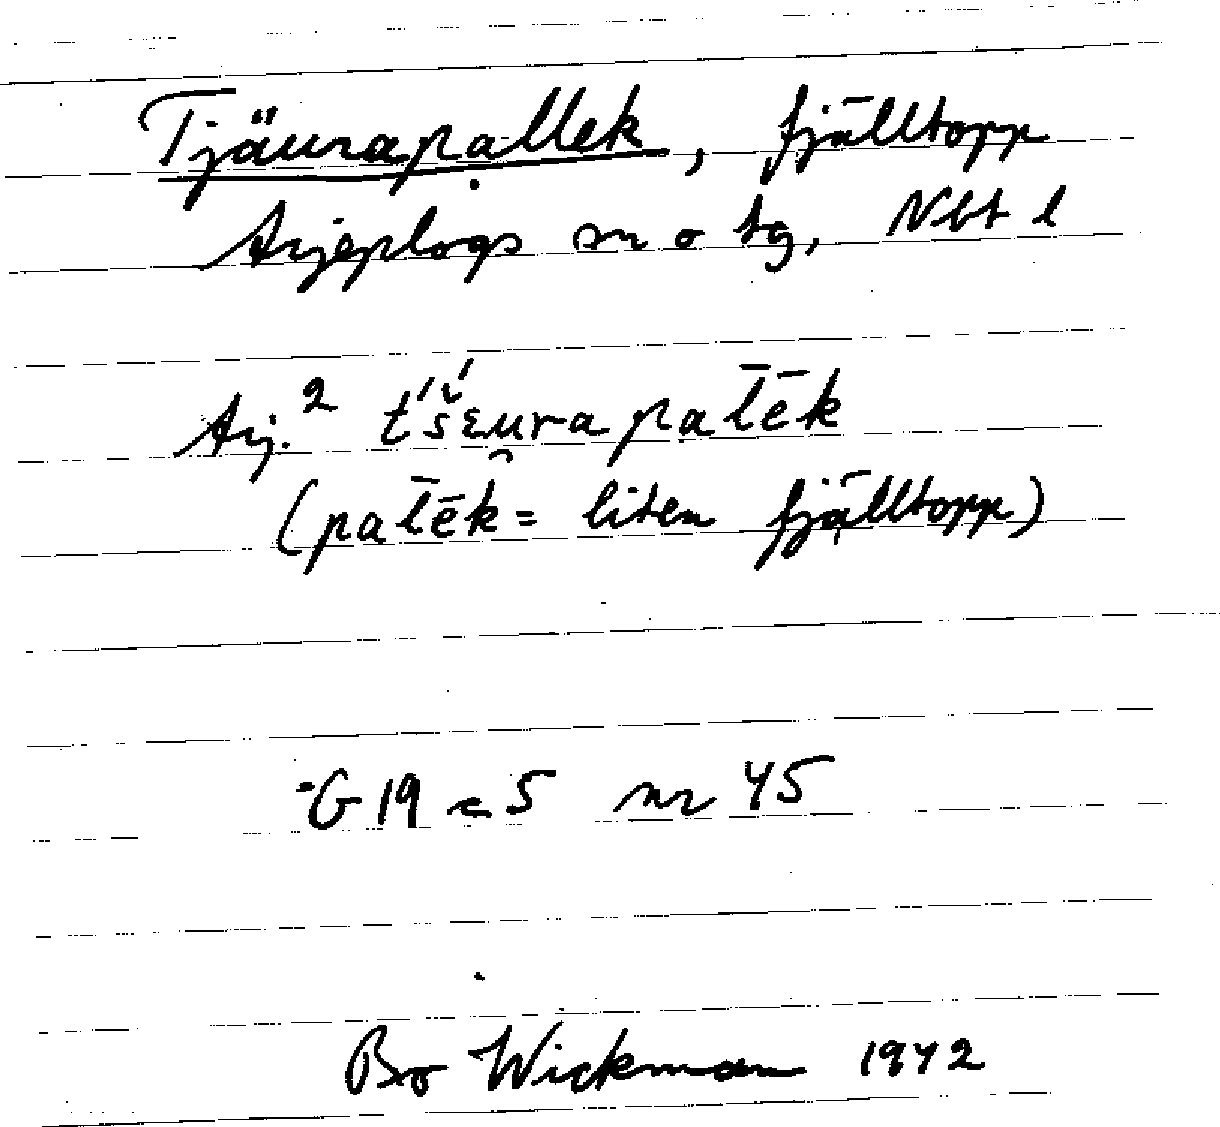 Tjäurapallek, fjälltopp
Arjeplogs sn o tg, Nbt l
Arj.² t́š́ɛurapal̄ēk
(pal̄ēk̂ = liten fjälltopp)
G 19 c 5 nr 45
Bo Wickman 1942